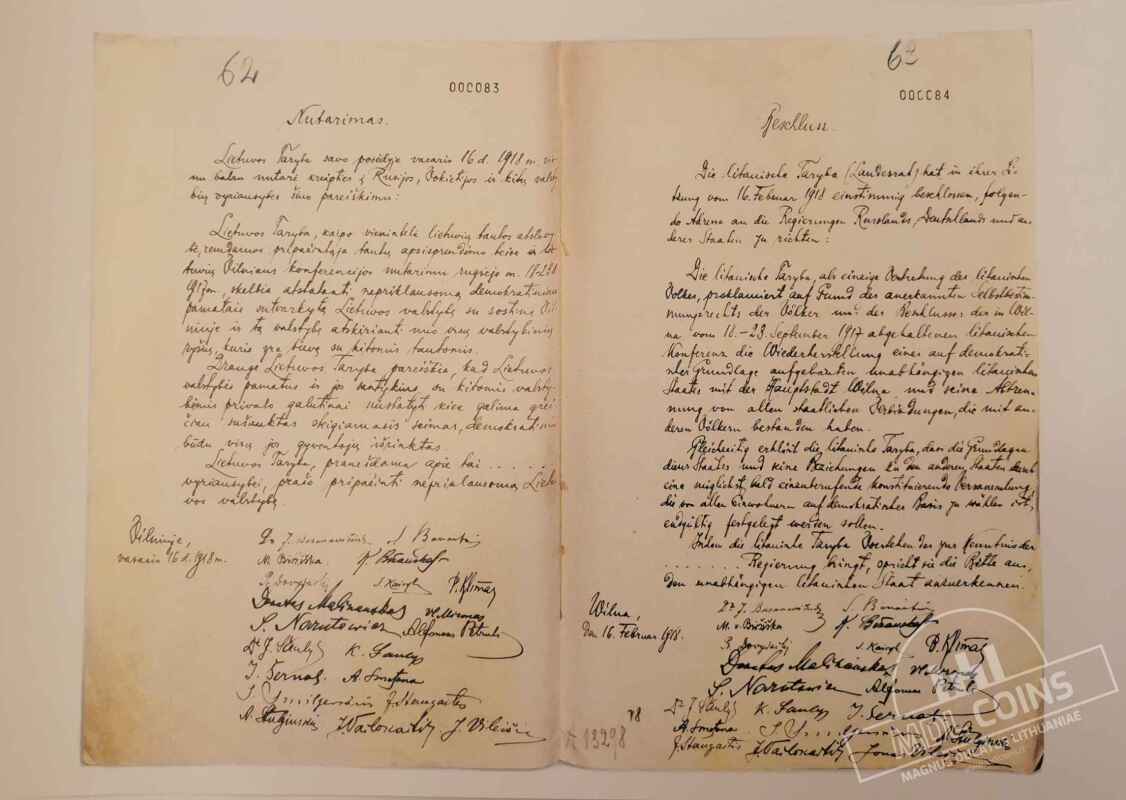 62
000083
Nutarimas.
Lietuvos Taryba savo posėdyje vasario 16 d. 1918 m. vie-
nu balsu nutarė kreiptis į Rusijos, Vokietijos ir kitų valsty-
bių vyriausybes šiuo pareiškimu:
Lietuvos Taryba, kaipo vienintelė lietuvių tautos atstovy-
bė, remdamos pripažintąja tautų apsisprendimo teise ir lie-
tuvių Vilniaus konferencijos nutarimu rugsėjo m. 18-23 d
1917 m., skelbia atstatanti nepriklausomą demokratiniais
pamatais sutvarkytą Lietuvos valstybę su sostine Vil-
niuje ir tą valstybę atskirianti nuo visų valstybinių
ryšių, kurie yra buvę su kitomis tautomis.
Drauge Lietuvos Taryba pareiškia, kad Lietuvos
valstybės pamatus ir jos santykius su kitomis valsty-
bėmis privalo galutinai nustatyti kiek galima grei-
čiau sušauktas steigiamasis seimas, demokratiniu
būdu visų jos gyventojų išrinktas.
Lietuvos Taryba, pranešdama apie tai . . . . . .
vyriausybei, prašo pripažinti nepriklausomą Lietu-
vos valstybę.
Vilniuje,
vasario 16 d. 1918 m.
Dr J. Basanavičius S. Banaitis
M. Biržiška K. Bizauskas
P. Dovydaitis S. Kairys P. Klimas
Donatas Malinauskas Vl. Mironas
S. Narutowicz Alfonsas Petrulis
Dr J. Šaulys K. Šaulys
J. Šernas A. Smetona
J. Smilgevičius J. Staugaitis
A. Stulginskis J. Vailokaitis J. Vileišis
62
000084
Beschluss.
Die litauische Taryba (Landesrat) hat in ihrer Sit-
zung vom 16. Februar 1918 einstimmig beschlossen, folgen-
de Adresse an die Regierungen Russlands, Deutschlands und an-
derer Staaten zu richten:
Die litauische Taryba, als einzige Vertretung des litauischen
Volkes, proklamiert auf Grund des anerkannten Selbstbestim-
mungsrechts der Völker und des Beschlusses der in Wil-
na vom 18.-23. September 1917 abgehaltenen litauischen
Konferenz die Wiederherstellung eines auf demokrati-
scher Grundlage aufgebauten unabhängigen litauischen
Staates mit der Hauptstadt Wilna und seine Abtren-
nung von allen staatlichen Verbindungen, die mit an-
deren Völkern bestanden haben.
Gleichzeitig erklärt die litauische Taryba, dass die Grundlagen
dieses Staates und seine Beziehungen zu den anderen Staaten durch
eine möglichst bald einzuberufende konstituierende Versammlung,
die von allen Einwohnern auf demokratischer Basis zu wählen ist,
endgültig festgelegt werden sollen.
Indem die litauische Taryba Vorstehendes zur Kenntnis der
. . . . . . . Regierung bringt, spricht sie die Bitte aus,
den unabhängigen litauischen Staat anzuerkennen.
Wilna,
den 16. Februar 1918.
Dr J. Basanavičius S. Banaitis
M. v. Biržiška K. Bizauskas
P. Dovydaitis S. Kairys P. Klimas
Donatas Malinauskas Vl. Mironas
S. Narutowicz Alfonsas Petrulis
Dr J. Šaulys K. Šaulys J. Šernas
A. Smetona J. Smilgevičius A. Stulginskis
J. Staugaitis J. Vailokaitis Jonas Vileišis
MDL COINS
MAGNUS DUCATUS LITHUANIAE